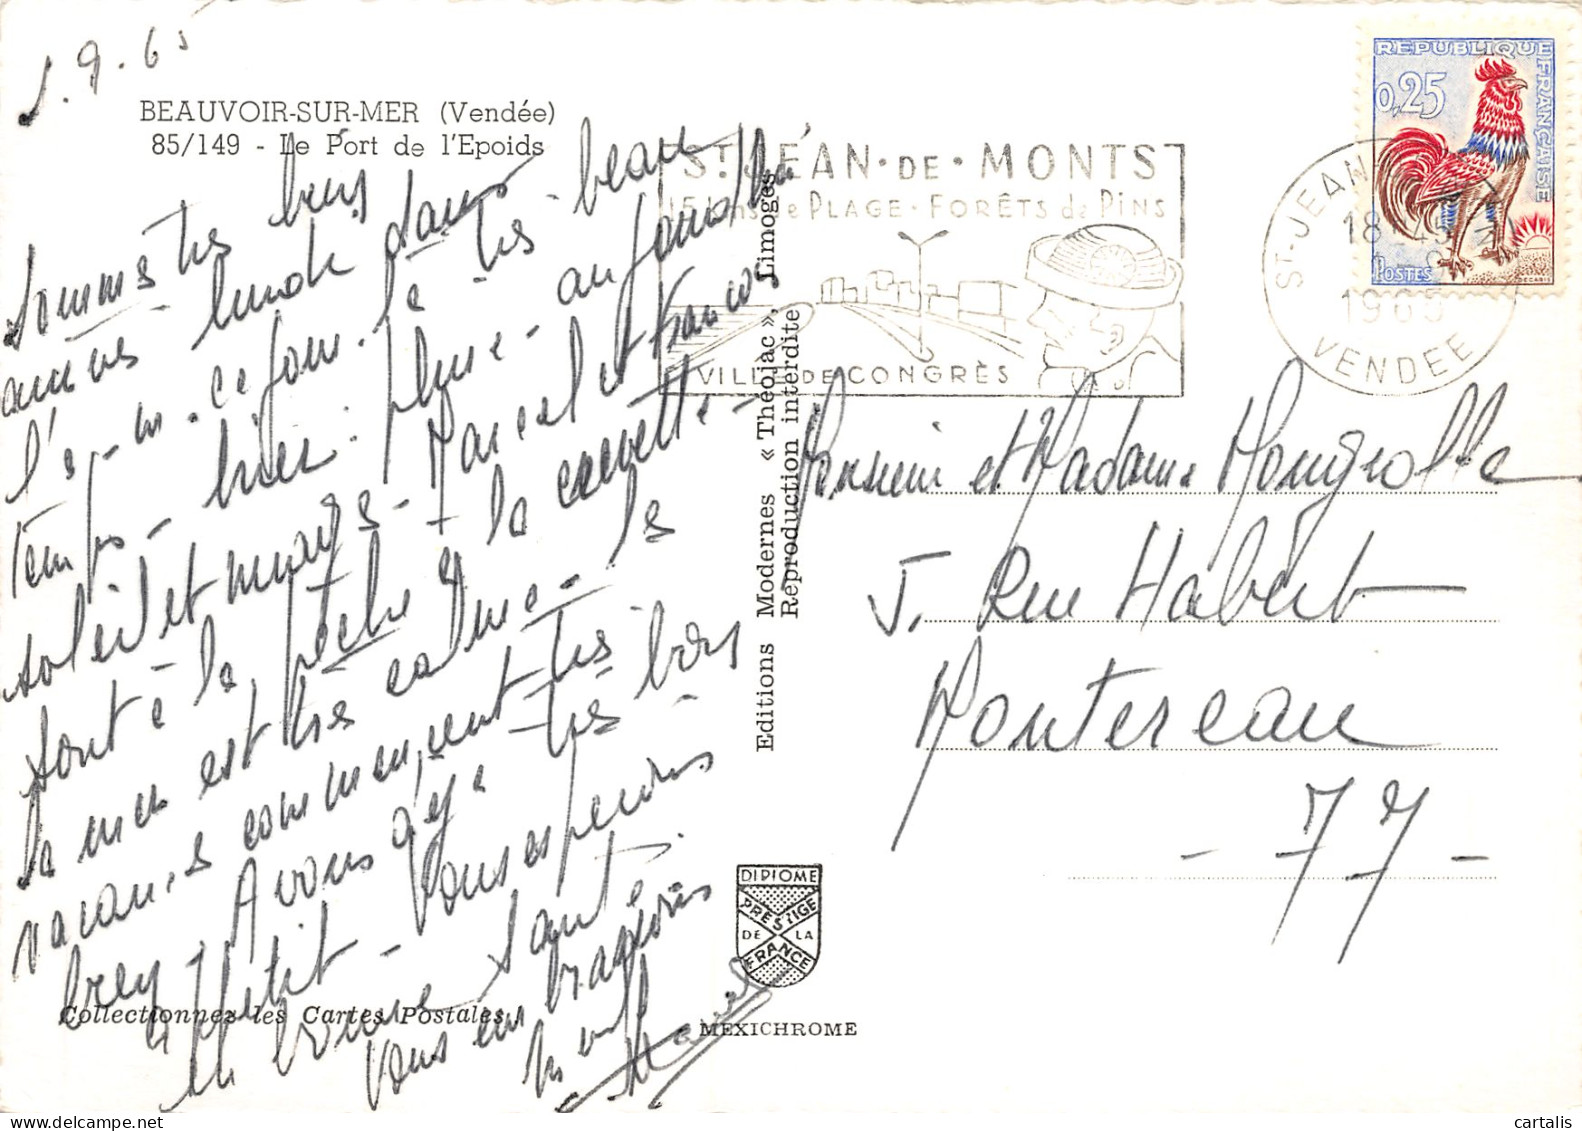 5.9.65
BEAUVOIR-SUR-MER (Vendée)
85/149 - Le Port de l'Epoids
Sommes très bien
arrivés lundi dans
l'a-m. ce jour-là très beau
temps - hier pluie - aujourd'hui
soleil et nuages - Marcel et Francis
sont à la pêche à la crevette -
la mer est très calme - la
vacances commencent très
bien - A vous a
petit - Vous espérons
en bonne santé
Vous embrassons
bien fort
Marcel
Collectionnez les Cartes Postales
Editions Modernes « Théojac », Limoges
Reproduction interdite
DIPLOME
PRESTIGE
DE LA
FRANCE
MEXICHROME
ST JEAN · DE · MONTS
15 kms de PLAGE · FORÊTS de PINS
VILLE DE CONGRÈS
ST-JEAN
18 H 45
1965
VENDEE
REPUBLIQUE FRANÇAISE
0,25
POSTES
DECARIS
Monsieur et Madame Mougnolle
5. Rue Habert
Montereau
- 77 -
cartalis